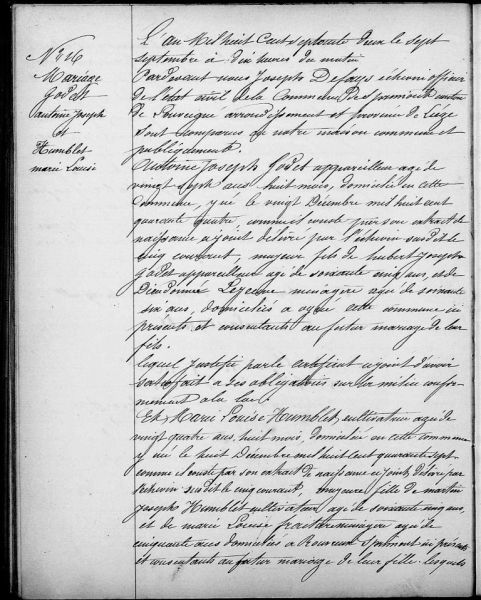 N° 26
Mariage
Godet
antoine Joseph
et
Humblet
marie Louise
L'an Mil huit Cent septante deux le sept
septembre à dix heures du matin
Pardevant nous Joseph Defays échevin officier
de l'état civil de la Commune de Sprimont canton
de Louveigné arrondissement et province de Liége
sont comparus en notre maison commune et
publiquement
Antoine Joseph Godet appareilleur agé de
vingt sept ans huit mois, domicilié en cette
commune, y né le vingt Décembre mil huit cent
quarante quatre comme il conste par son extrait de
naissance ci joint délivré par l'échevin susdit le
cinq courant, majeur fils de hubert Joseph
Godet appareilleur agé de soixante cinq ans, et de
Dieudonnée ménagère agée de soixante
six ans, domiciliés a cette commune ici
présents et consentants au futur mariage de leur
fils.
lequel Justifie par le certificat ci joint d'avoir
satisfait a ses obligations sur la milice confor-
mement a la loi
Et Marie Louise Humblet, cultivatrice agée de
vingt quatre ans, huit mois, domiciliée en cette commune
y née le huit Décembre mil huit Cent quarante sept
comme il conste par son extrait de naissance ci joint, délivré par
l'échevin susdit le cinq courant, majeure fille de martin
Joseph Humblet cultivateur agé de soixante cinq ans,
et de marie Louise ménagère agée de
cinquante ans domiciliés a Sprimont ici présents
et consentants au futur mariage de leur fille. lesquels